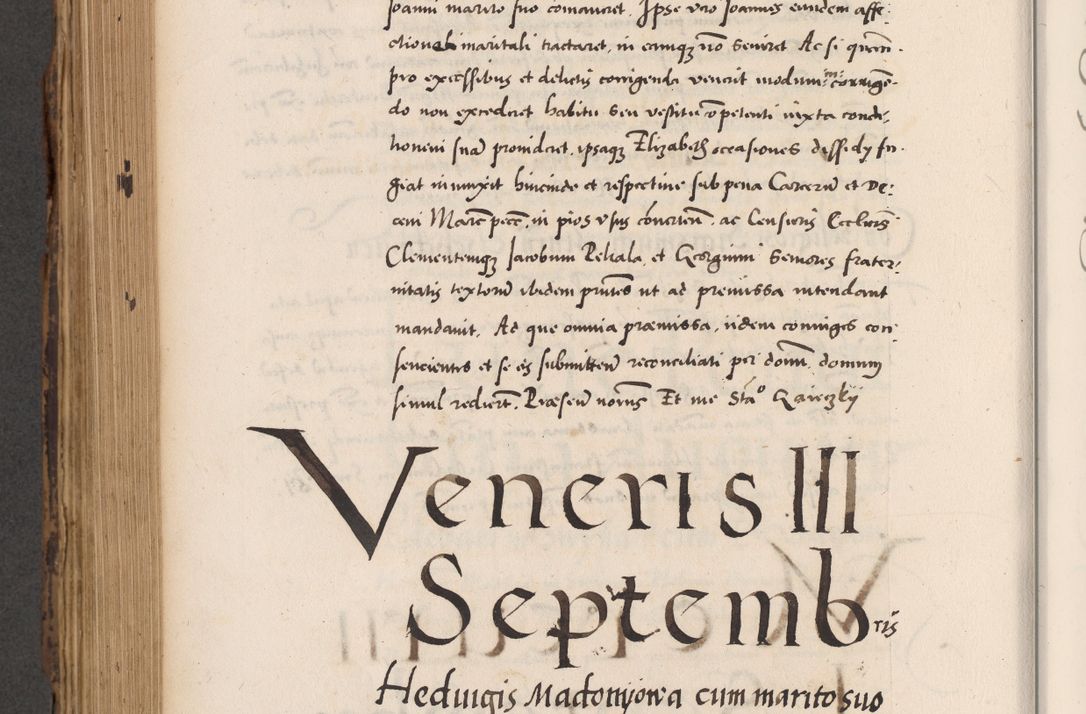 Joanni marito suo comauret. Ipse vero Joannes eundem affe
ctionali maritali tractaret, in eamq; nõ seviret Ac si quem
pro excessibus et delictis corrigenda venerit modum in corrigẽ
do non excederet habitu seu vestitu cõpetenti iuxta condi
tionem suã provideret, ipsaq; Elizabeth occasiones dissidy fu
giat iniunxit hincinde et respective sub pena Carcerũ et De:
cem Marc̃ pecc̃, in pios usus cõverteñ. ac Censuris Ecclicis
Clementemq; Jacobum Rehala, et Georgium Seniores frater:
nitatis textorũ ibidem pñtes ut ad premissa intendant
mandavit. Ad que omnia præmissa, iidem coniuges con
sencientes et se eis submitteñ reconciliati per domĩ, domum
simul rediert̃. Præseñ norũs Et me Stã°
Veneris III
Septembris
Hedvigis cum marito suo